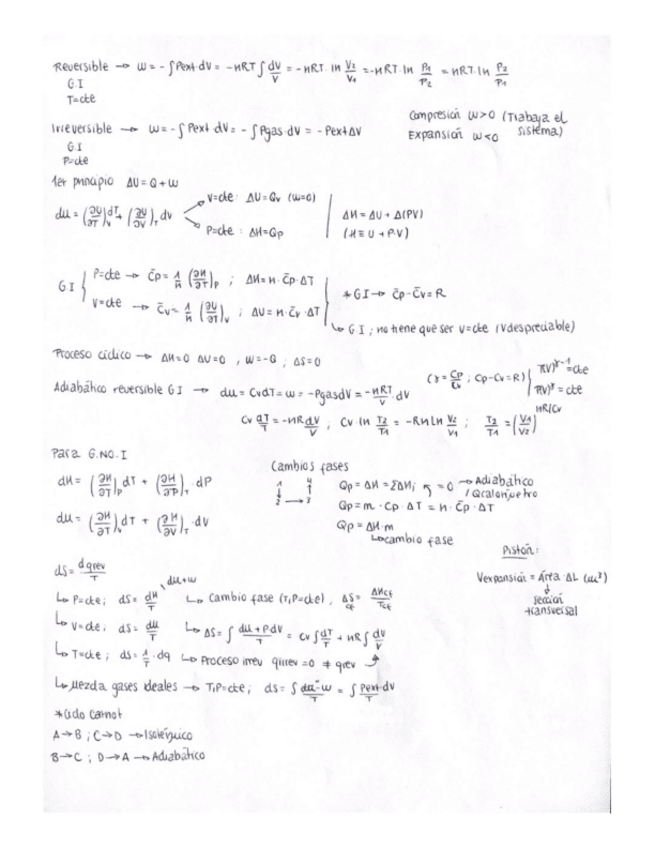 Reversible → W = - ∫Pext·dV = -nRT ∫ dV/V = -nRT·ln V2/V1 = -nRT·ln P1/P2 = nRT·ln P2/P1
G.I
T=cte
Compresión W>0 (Trabaja el sistema)
Expansión W<0
Irreversible → W = - ∫Pext·dV = - ∫Pgas·dV = - Pext ΔV
G.I
P=cte
1er principio ΔU = Q + W
du = (∂U/∂T)v dT + (∂U/∂V)T dV
V=cte: ΔU = Qv (W=0)
P=cte: ΔH = Qp
ΔH = ΔU + Δ(PV)
(H ≡ U + P·V)
G.I
P=cte → C̄p = 1/n (∂H/∂T)p ; ΔH = n·C̄p·ΔT
V=cte → C̄v = 1/n (∂U/∂T)v ; ΔU = n·C̄v·ΔT
* G.I → C̄p - C̄v = R
↳ G.I ; no tiene que ser V=cte (V despreciable)
Proceso cíclico → ΔH=0 ΔU=0 , W=-Q ; ΔS=0
(γ = Cp/Cv ; Cp-Cv=R)
T(V)^γ-1 = cte
P(V)^γ = cte
Adiabático reversible G I → du = CvdT = W = -PgasdV = -nRT/V · dV
Cv dT/T = -nR dV/V ; Cv ln T2/T1 = -Rn Ln V2/V1 ; T2/T1 = (V1/V2)^nR/Cv
Para G.NO.I
dH = (∂H/∂T)p dT + (∂H/∂P)T · dP
du = (∂H/∂T)v dT + (∂H/∂V)T · dV
Cambios fases
1 4
2 → 3
Qp = ΔH = ΣΔHi = 0 → Adiabático / Qcalorímetro
Qp = m · Cp · ΔT = n · C̄p · ΔT
Qp = ΔH·m
↳ cambio fase
Pistón:
Vexpansión = Área · ΔL (m³)
↓
sección
transversal
dS = dqrev/T
du+w
↳ P=cte; dS = dH/T ↳ Cambio fase (T,P=cte), ΔS CF = ΔHCF/TCF
↳ V=cte; dS = du/T ↳ ΔS = ∫ du + P·dV/T = Cv ∫ dT/T + nR ∫ dV/V
↳ T=cte; dS = 1/T · dq ↳ Proceso irrev qirrev = 0 ≠ qrev
↳ Mezcla gases ideales → T,P=cte; dS = ∫ du-w/T = ∫ Pext·dV/T
* Ciclo Carnot
A→B ; C→D → Isotérmico
B→C ; D→A → Adiabático